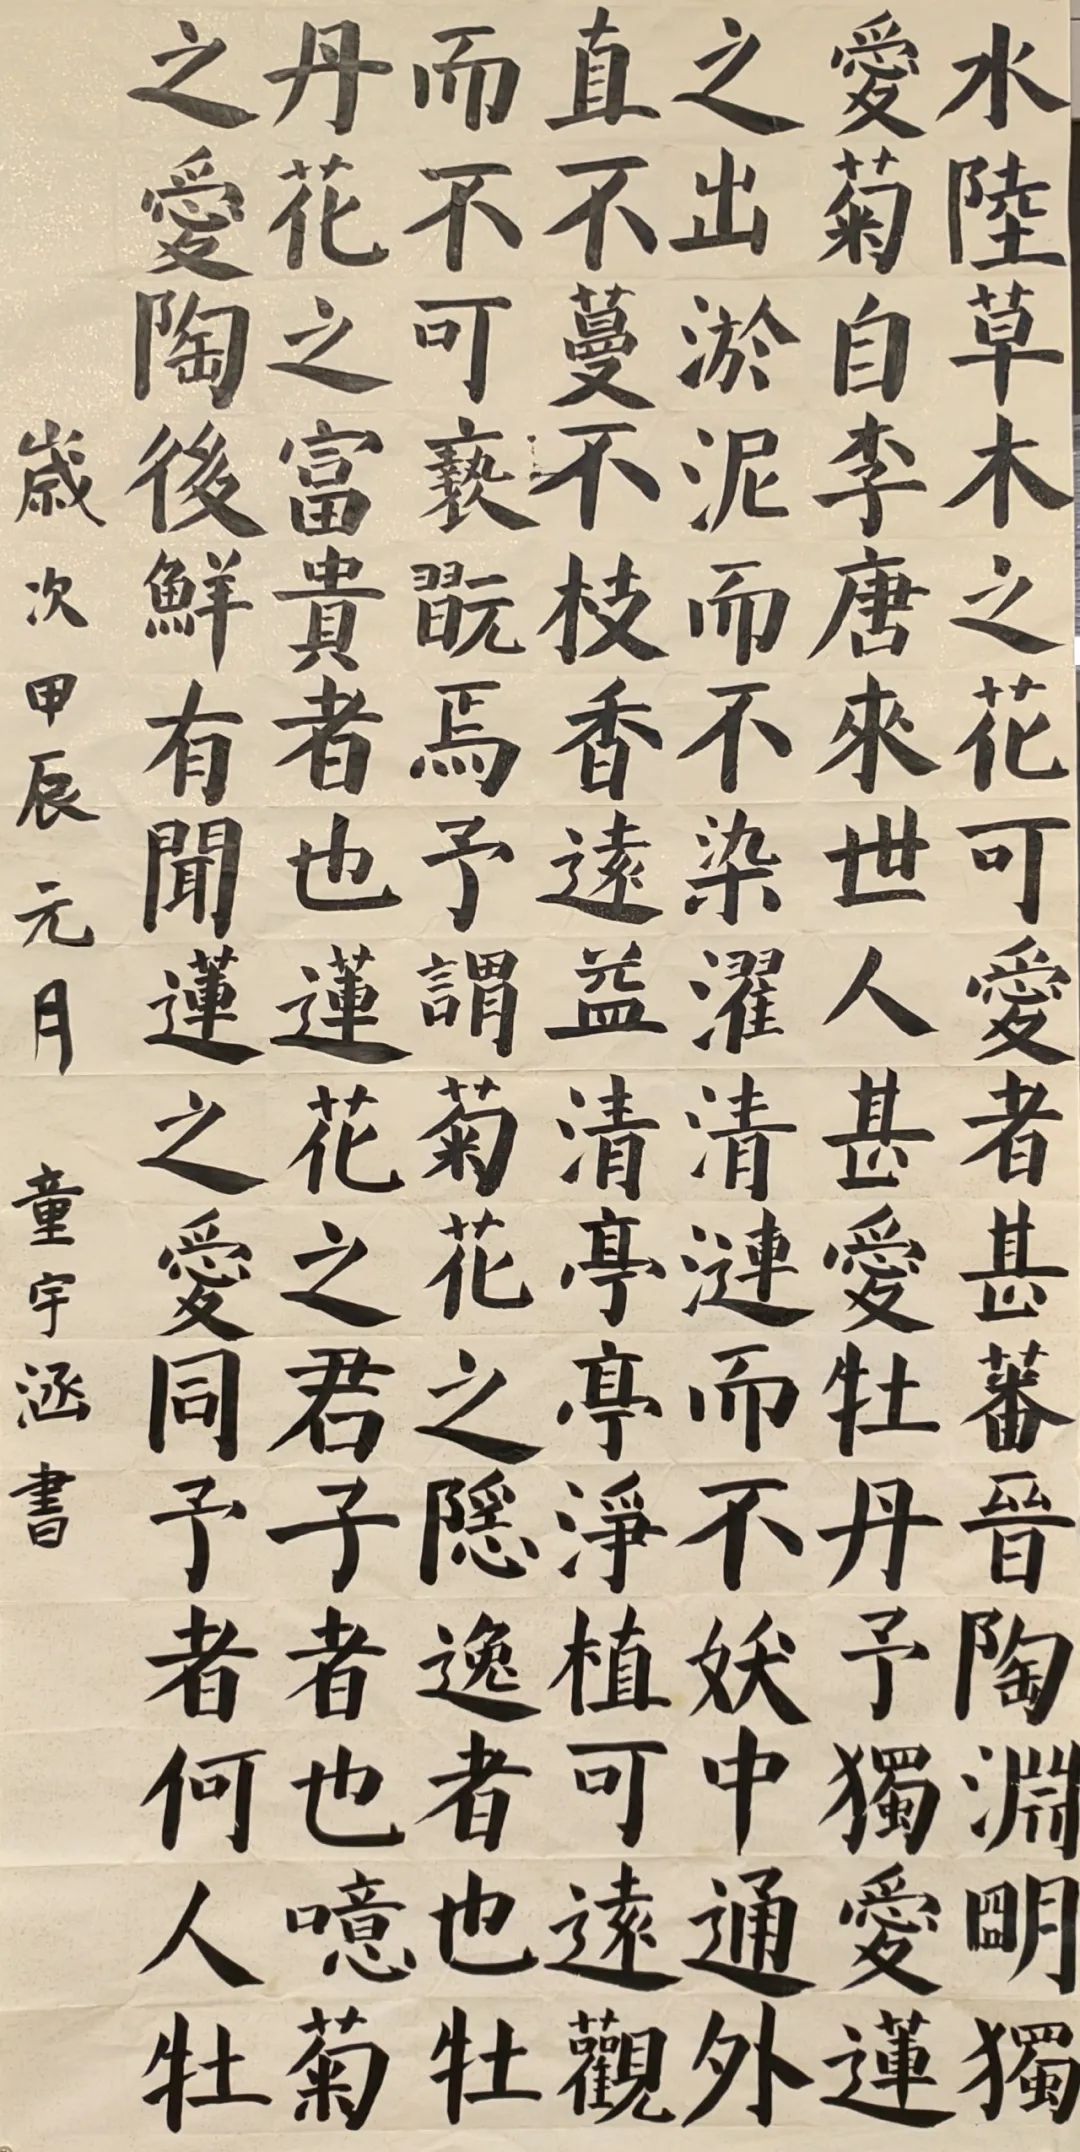 水陸草木之花可愛者甚蕃晉陶淵明獨
愛菊自李唐來世人甚愛牡丹予獨愛蓮
之出淤泥而不染濯清漣而不妖中通外
直不蔓不枝香遠益清亭亭淨植可遠觀
而不可褻翫焉予謂菊花之隱逸者也牡
丹花之富貴者也蓮花之君子者也噫菊
之愛陶後鮮有聞蓮之愛同予者何人牡
歲次甲辰元月 童宇涵書